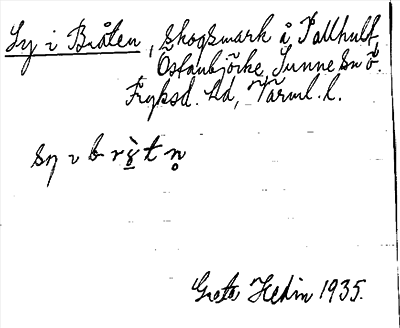 Sy i Bråten, Skogsmark å Pallhult,
Östanbjörke, Sunne sn ö.
Fryksd. hd, Värml. l.
Greta Hedin 1935.